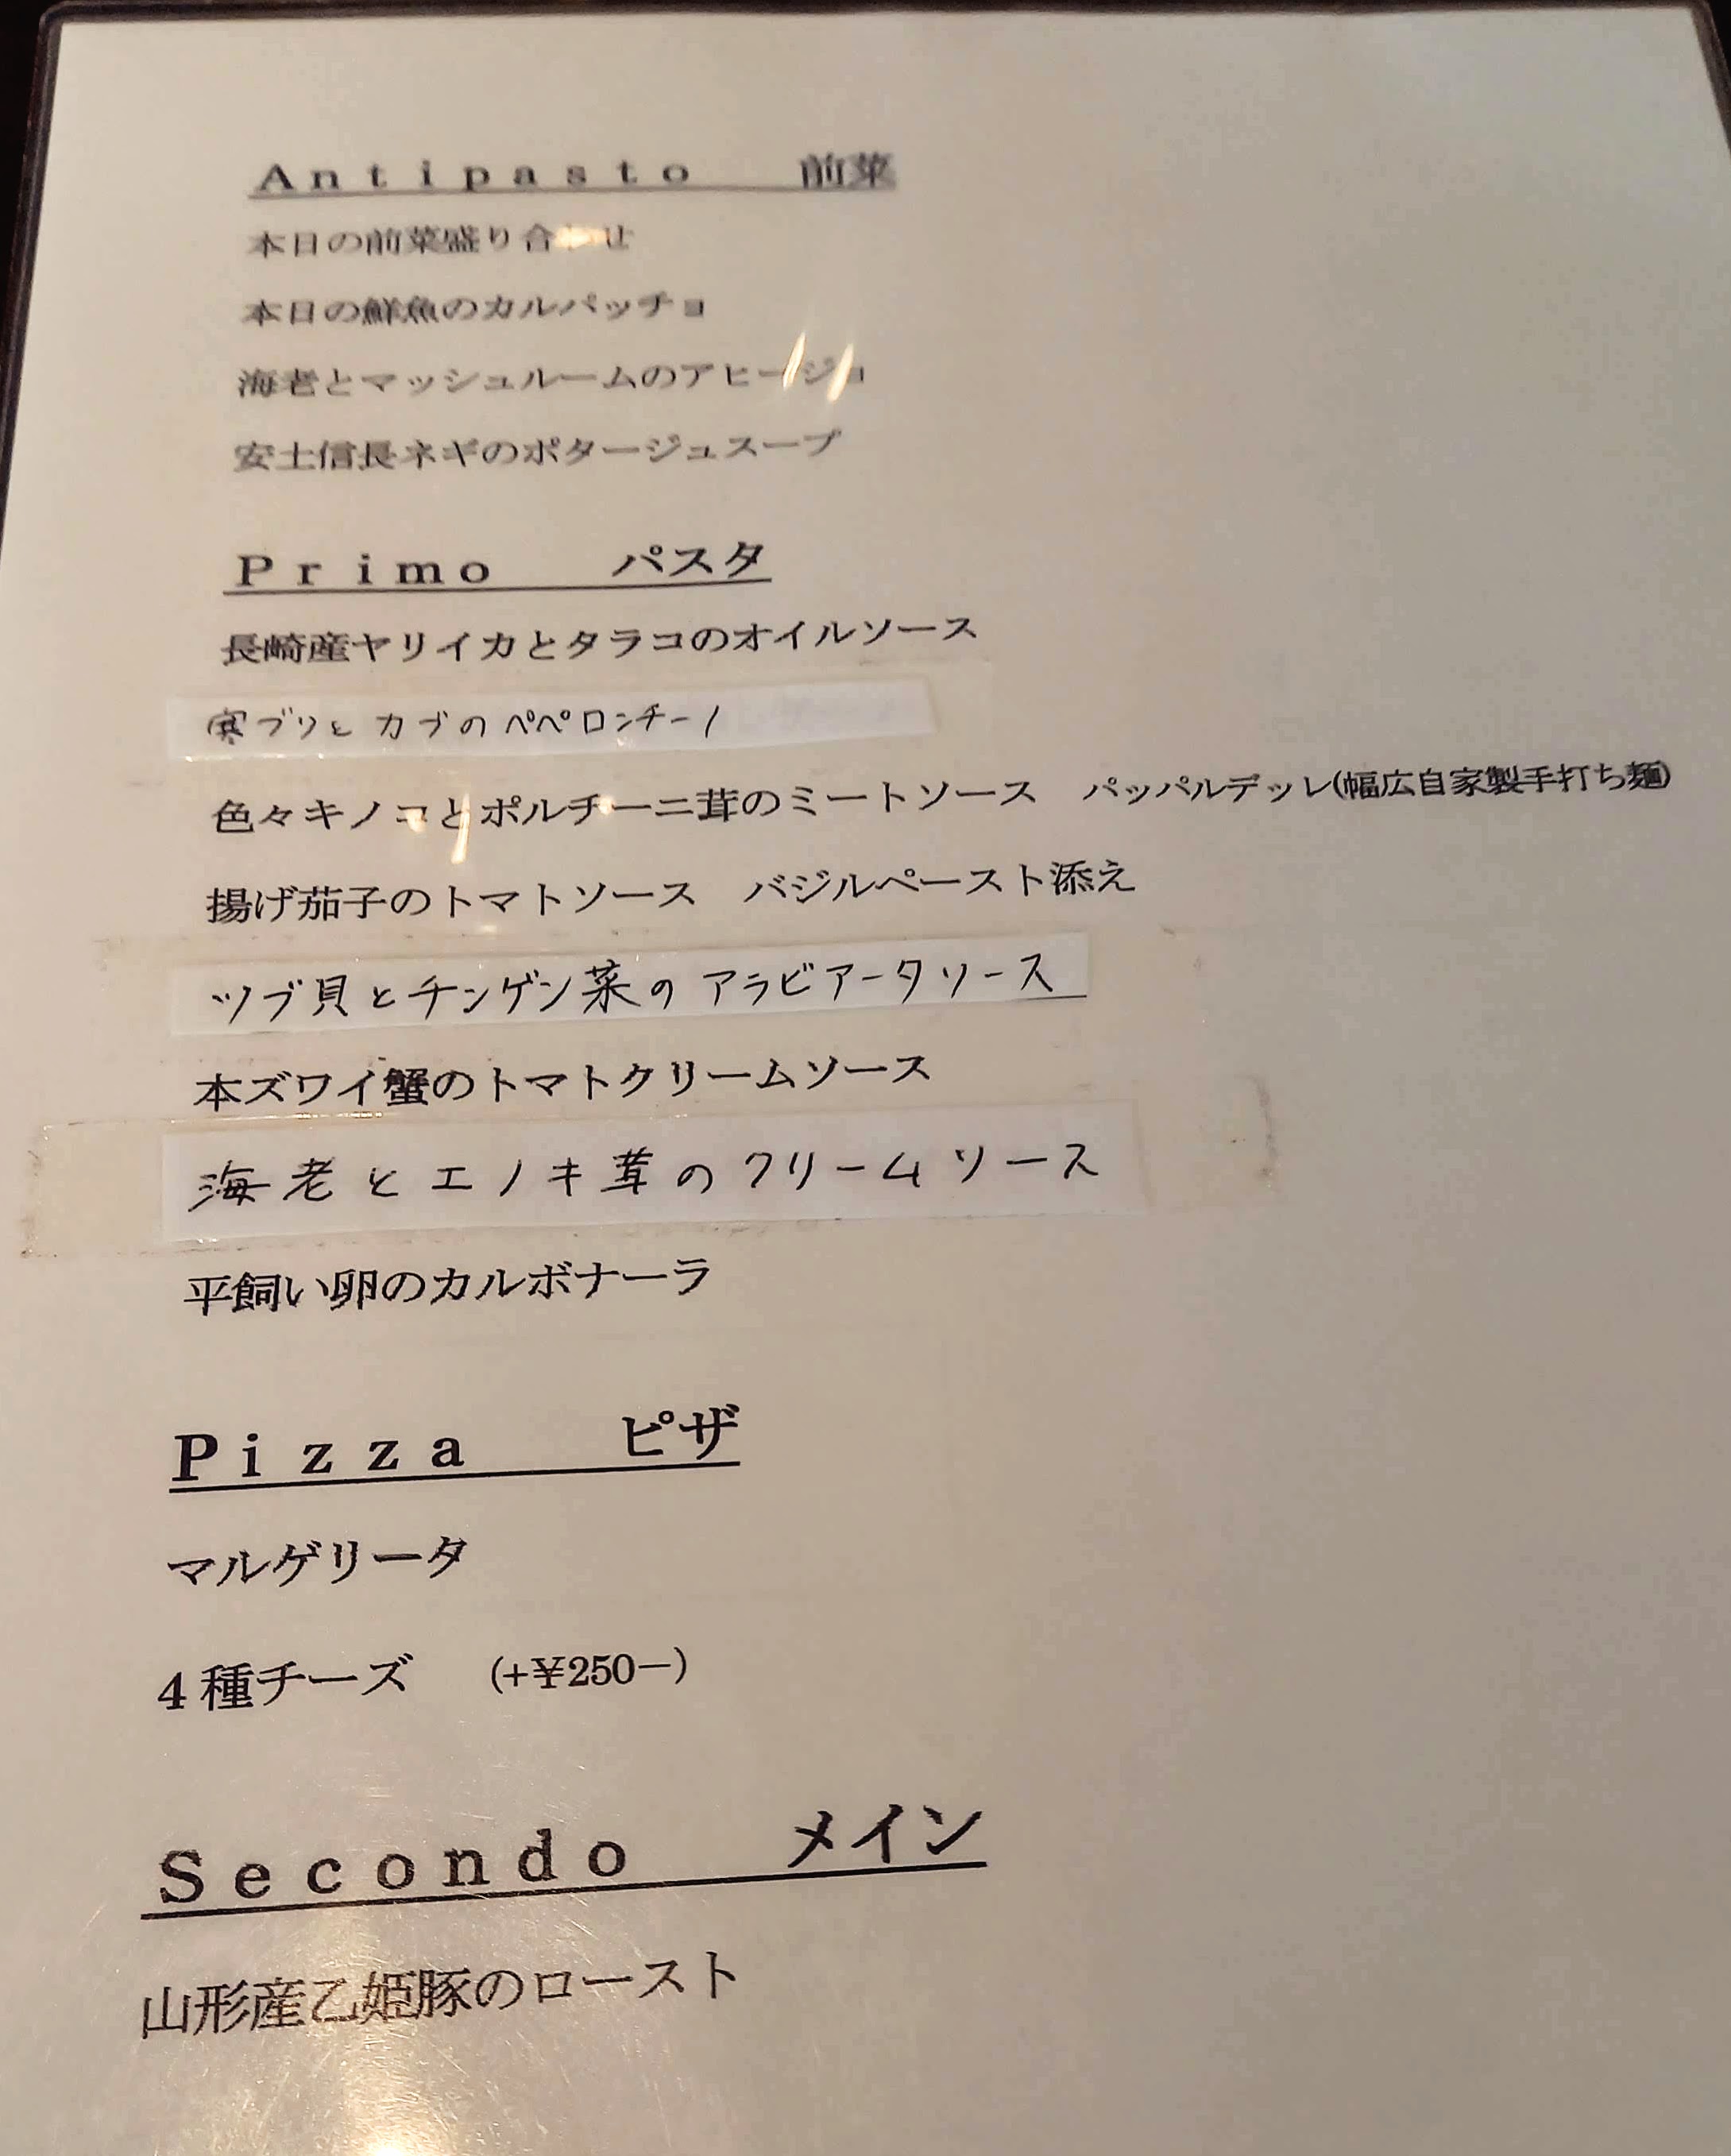 Antipasto　前菜
本日の前菜盛り合わせ
本日の鮮魚のカルパッチョ
海老とマッシュルームのアヒージョ
安土信長ネギのポタージュスープ
Primo　パスタ
長崎産ヤリイカとタラコのオイルソース
寒ブリとカブのペペロンチーノ
色々キノコとポルチーニ茸のミートソース　パッパルデッレ(幅広自家製手打ち麺)
揚げ茄子のトマトソース　バジルペースト添え
ツブ貝とチンゲン菜のアラビアータソース
本ズワイ蟹のトマトクリームソース
海老とエノキ茸のクリームソース
平飼い卵のカルボナーラ
Pizza　ピザ
マルゲリータ
4種チーズ　(+¥250ー)
Secondo　メイン
山形産乙姫豚のロースト